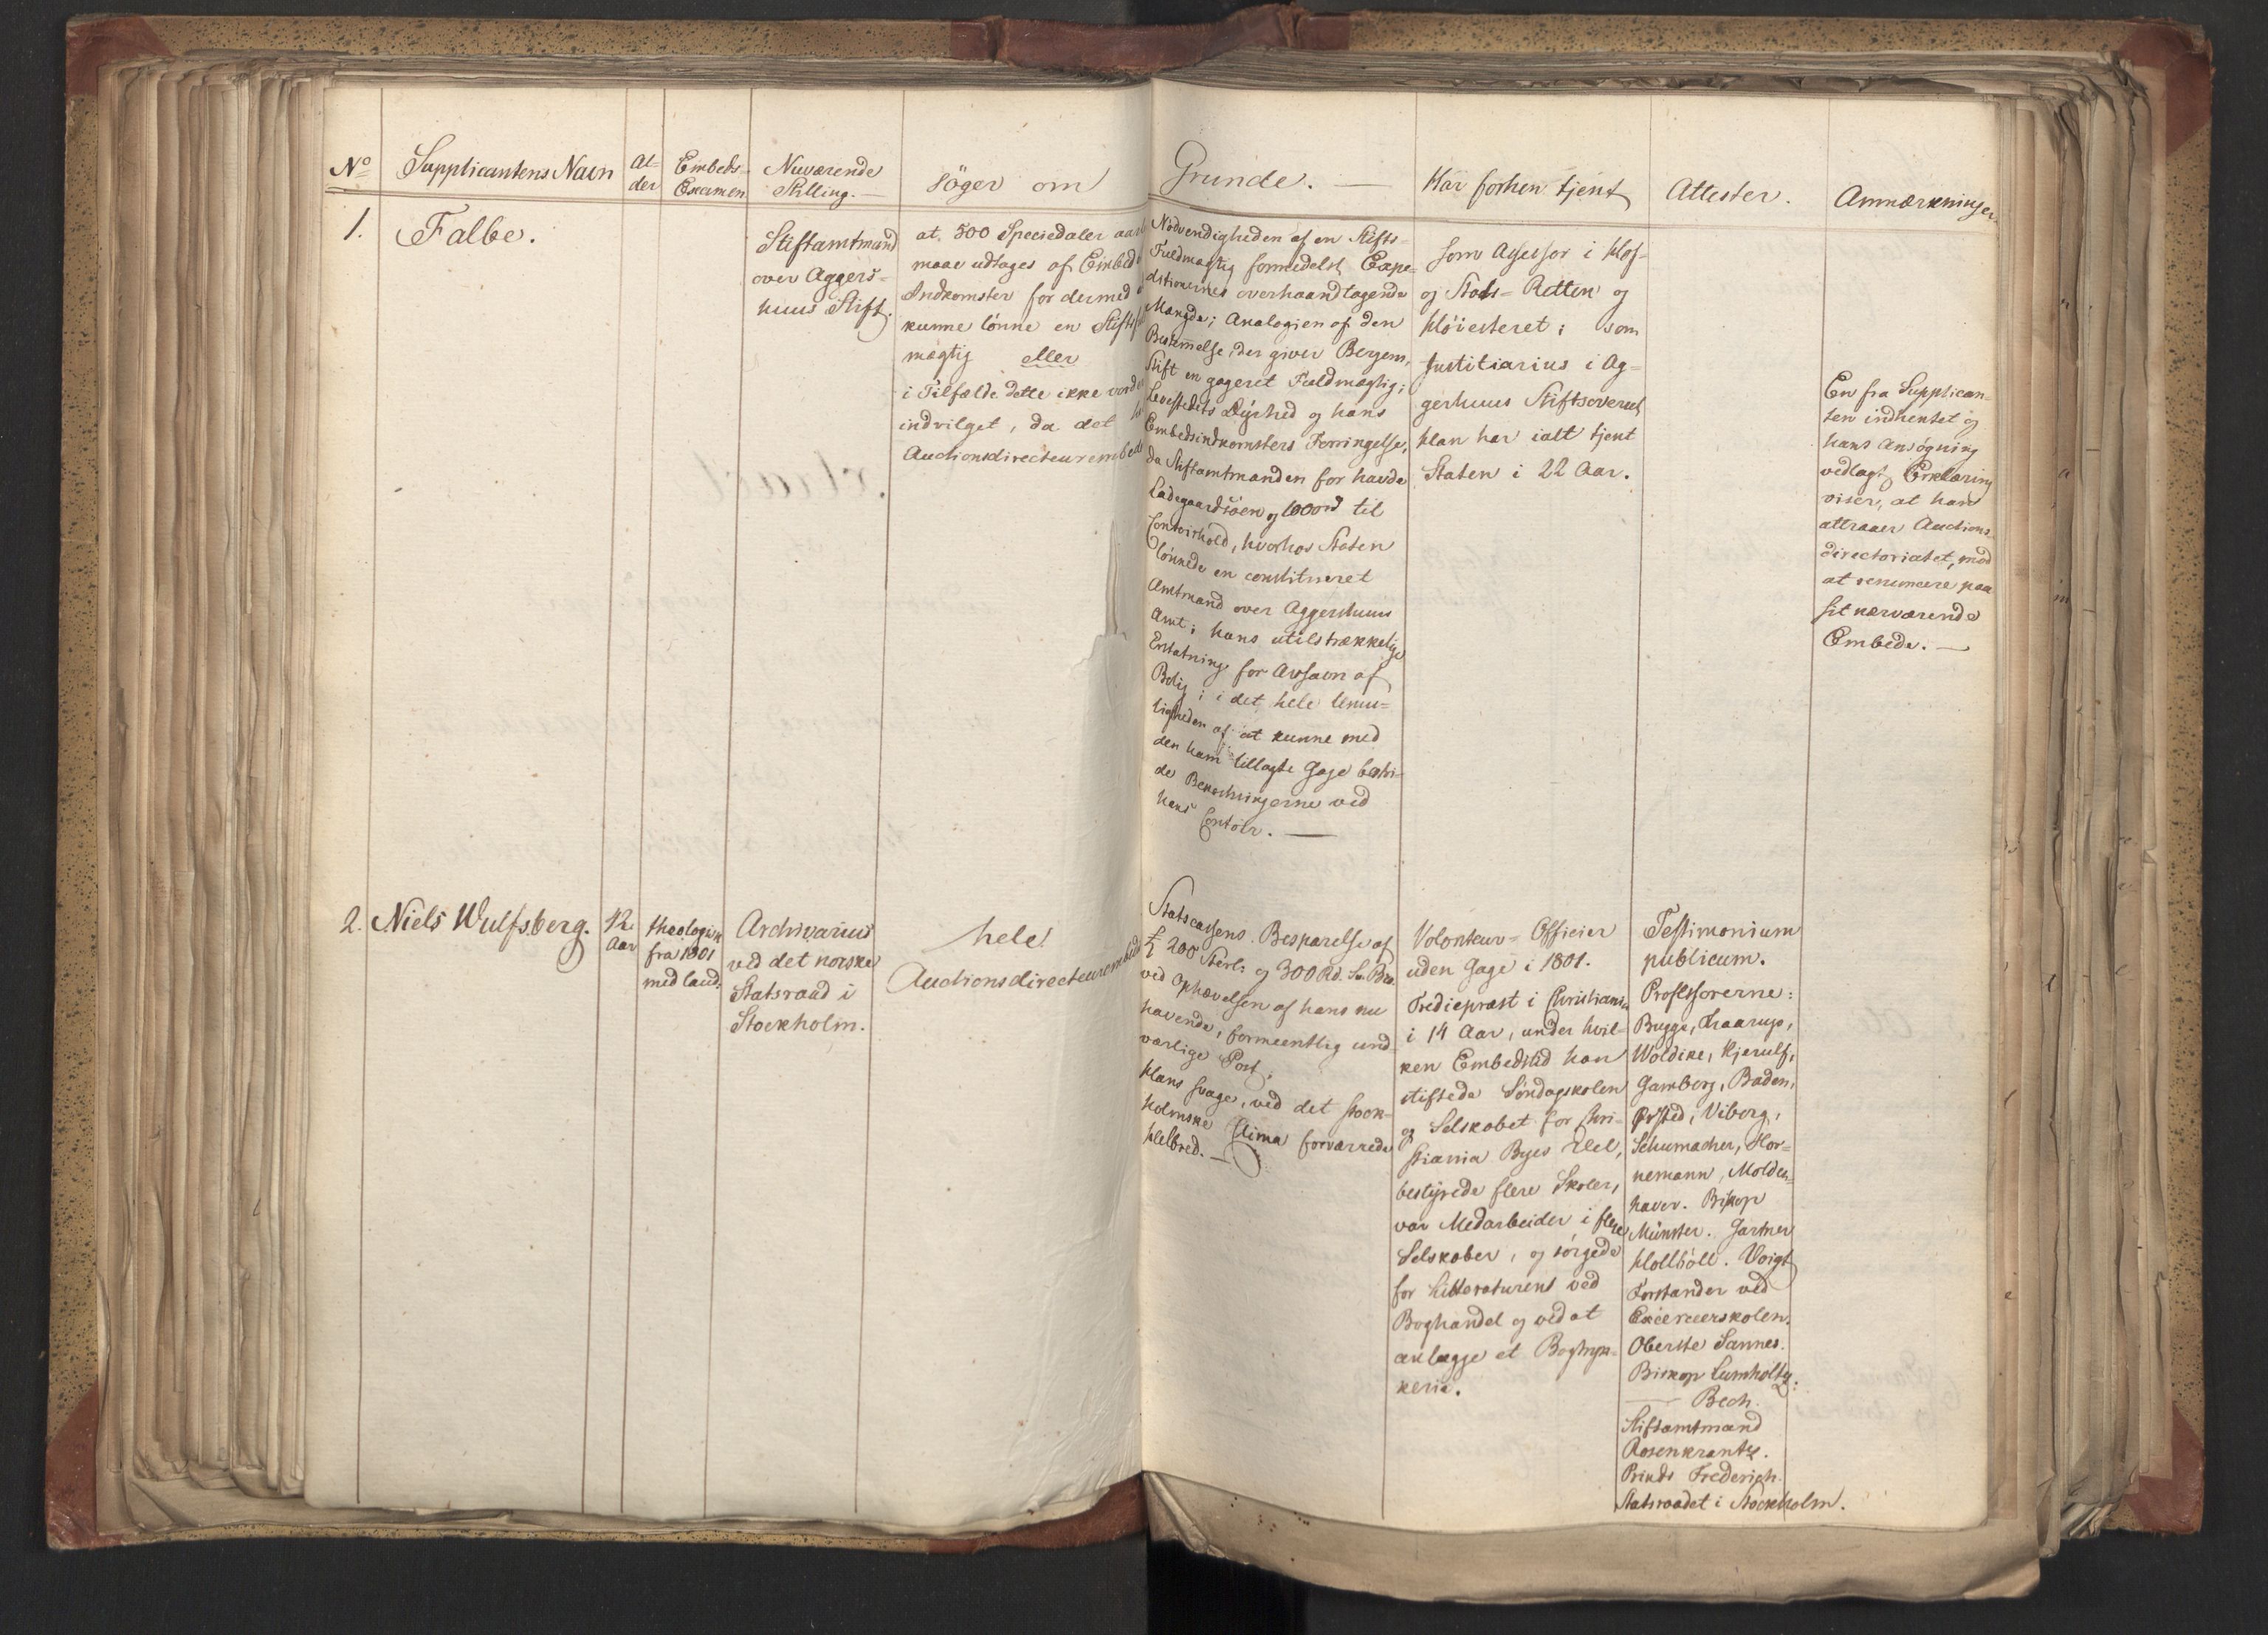 No
Supplicantens Navn
Al=
der
Embeds=
Examen
Nuværende
Stilling. —
söger om
Grunde. —
Har forhen tjent
Attester.
Anmærkninger
1.
Falbe.
Stiftamtmand
over Aggers=
huus Stift.
at 500 Speciedaler aarl
maae udtages af Embeds
Indkomster for dermed
kunne lönne en Stifts
mægtig eller
i Tilfælde dette ikke vorder
indvilget, da det
Auctionsdirecteurembede
Nödvendigheden af en Stifts=
Fuldmægtig formedelst Expe=
ditionernes overhaandtagende
Mængde; Analogien af den
Bestemmelse, der giver Bergens
Stift en gageret Fuldmægtig;
Levestedets Dyrhed og hans
Embedsindkomsters Forringelse,
da Stiftamtmanden för havde
Ladegaardsöen og 1000rd til
Contoirhold, hvorhos Staten
lönnede en constitueret
Amtmand over Aggershuus
Amt; hans utilstrækkelige
Erstatning for Avsavn af
Bolig; i det hele Umu=
ligheden af at kunne med
den ham tillagte Gage bestri=
de Bekostningerne ved
hans Contoir. —
som Assessor i Hof=
og Stads=Retten og
Höiesteret; som
Justitiarius i Ag=
gerhuus Stiftsoverret
Han har ialt tjent
Staten i 22 Aar.
En fra Supplican=
ten indhentet og
hans Ansögning
vedlagt Erklæring
viser, at han
attraaer Auctions=
directoriatet, mod
at renuncere paa
sit nærværende
Embede. —
2.
Niels Wulfsberg.
Aar
theologisk
fra 1801
med laud.
Archivarius
ved det norske
Statsraad i
Stockholm.
hele
Auctionsdirecteurembedet
Statscassens Besparelse af
£ 200 Sterl: og 300 Rd. Sv. Bco.
ved Ophævelsen af hans nu
havende, formeentlig und=
værlige Post.
Hans svage, ved det stock=
holmske Clima forværrede
Helbred. —
Volonteur=Officier
uden Gage i 1801.
Trediepræst i Christiania
i 14 Aar, under hvil=
ken Embedstid han
stiftede Söndagskolen
og Selskabet for Chri=
stiania Byes Vel,
bestyrede flere Skoler,
var Medarbeider i flere
Selskaber, og sörgede
for Litteraturens ved
Boghandel og ved at
anlægge et Bogtryk=
kerie.
Testimonium
publicum.
Professorerne:
Bugge, Kraarup,
Woldike, Kjerulf,
Gamborg, Baden,
Örsted, Viborg,
Schumacher, Hor=
nemann, Molden=
haver. Biskop
Münster. Gartner
Holböll. Voigt
Forstander ved
Exerceerskolen.
Oberste Sannes.
Biskop Lumholtz.
— Bech.
Stiftamtmand
Rosenkrantz.
Prinds Frederich.
Statsraadet i Stockholm.